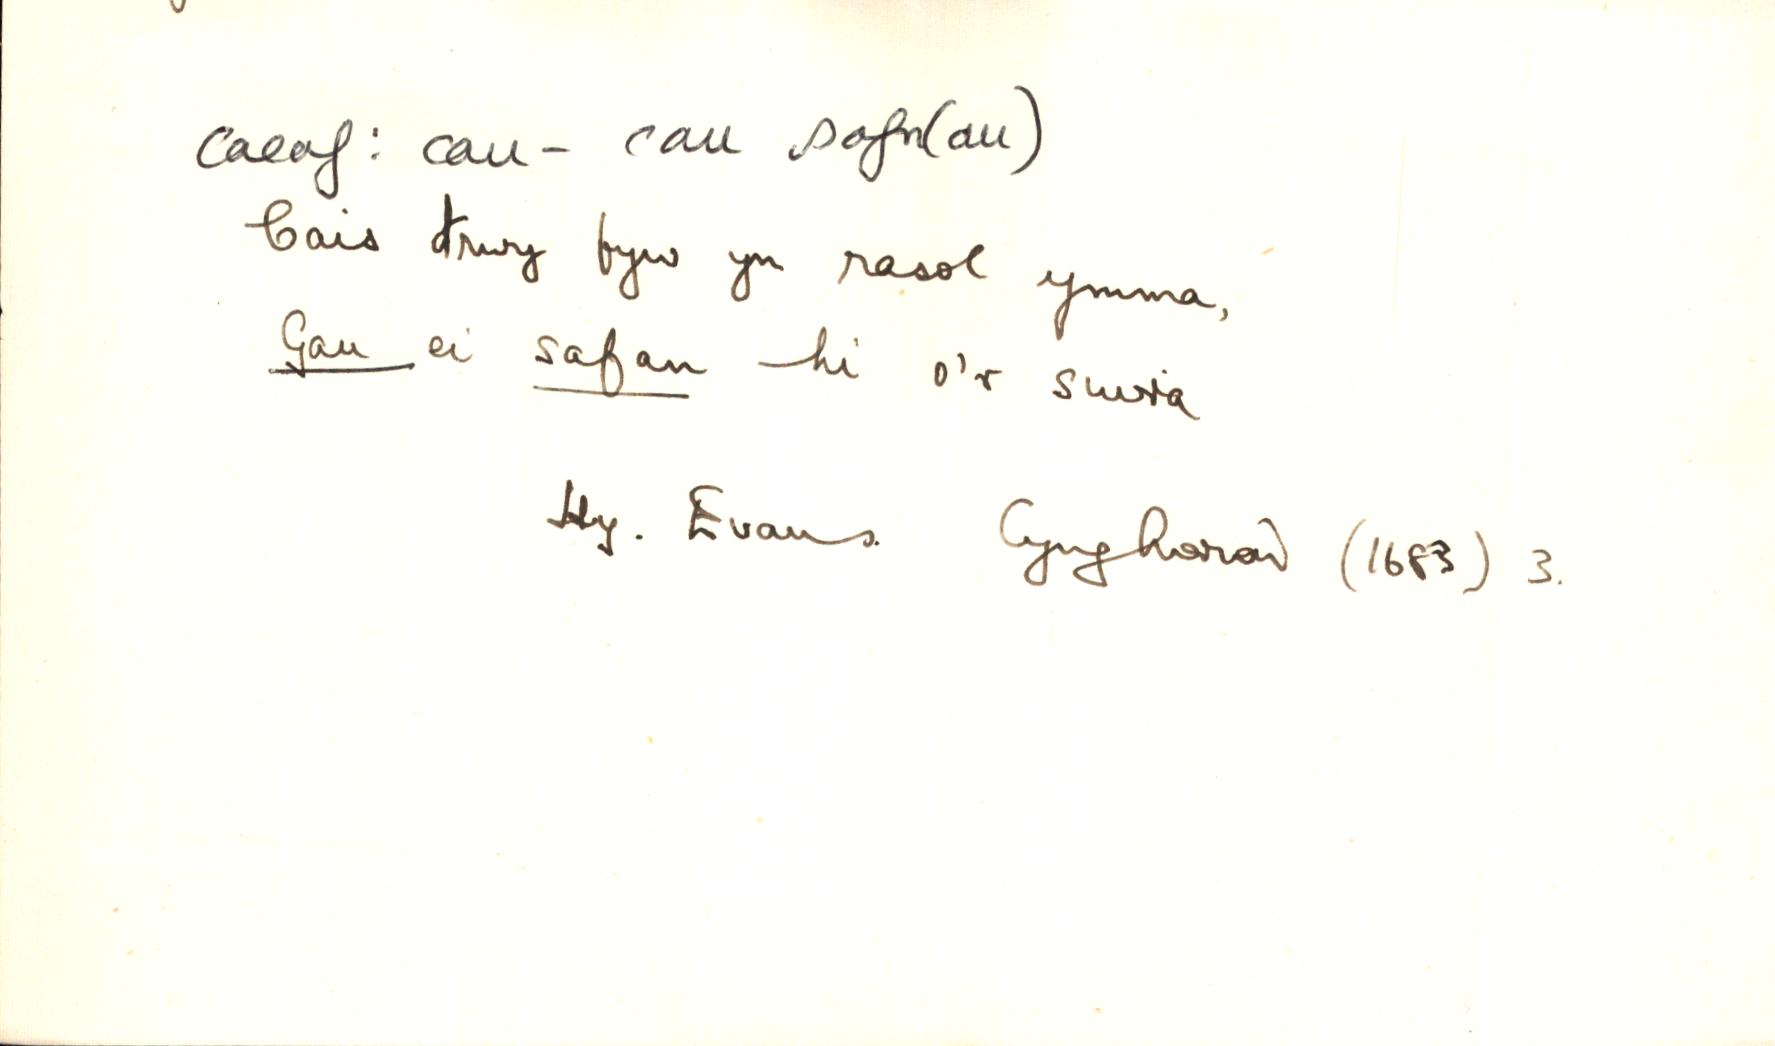 caeaf: cau - cau safn(au)
Cais trwy fyw yn rasol ymma,
Gau ei safan hi o'r swia
Hy. Evans. Cynghorau (1683) 3.